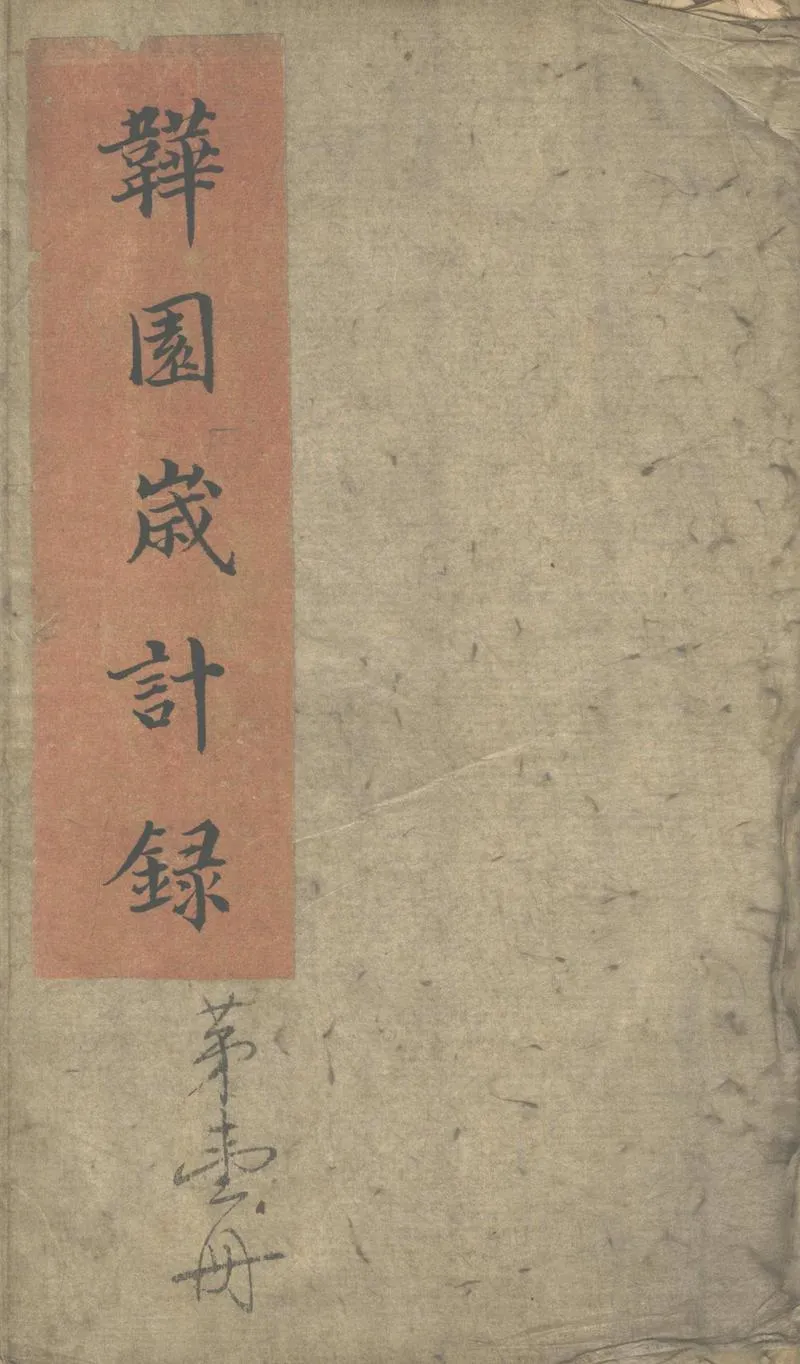 韡園歲計録
第壹册